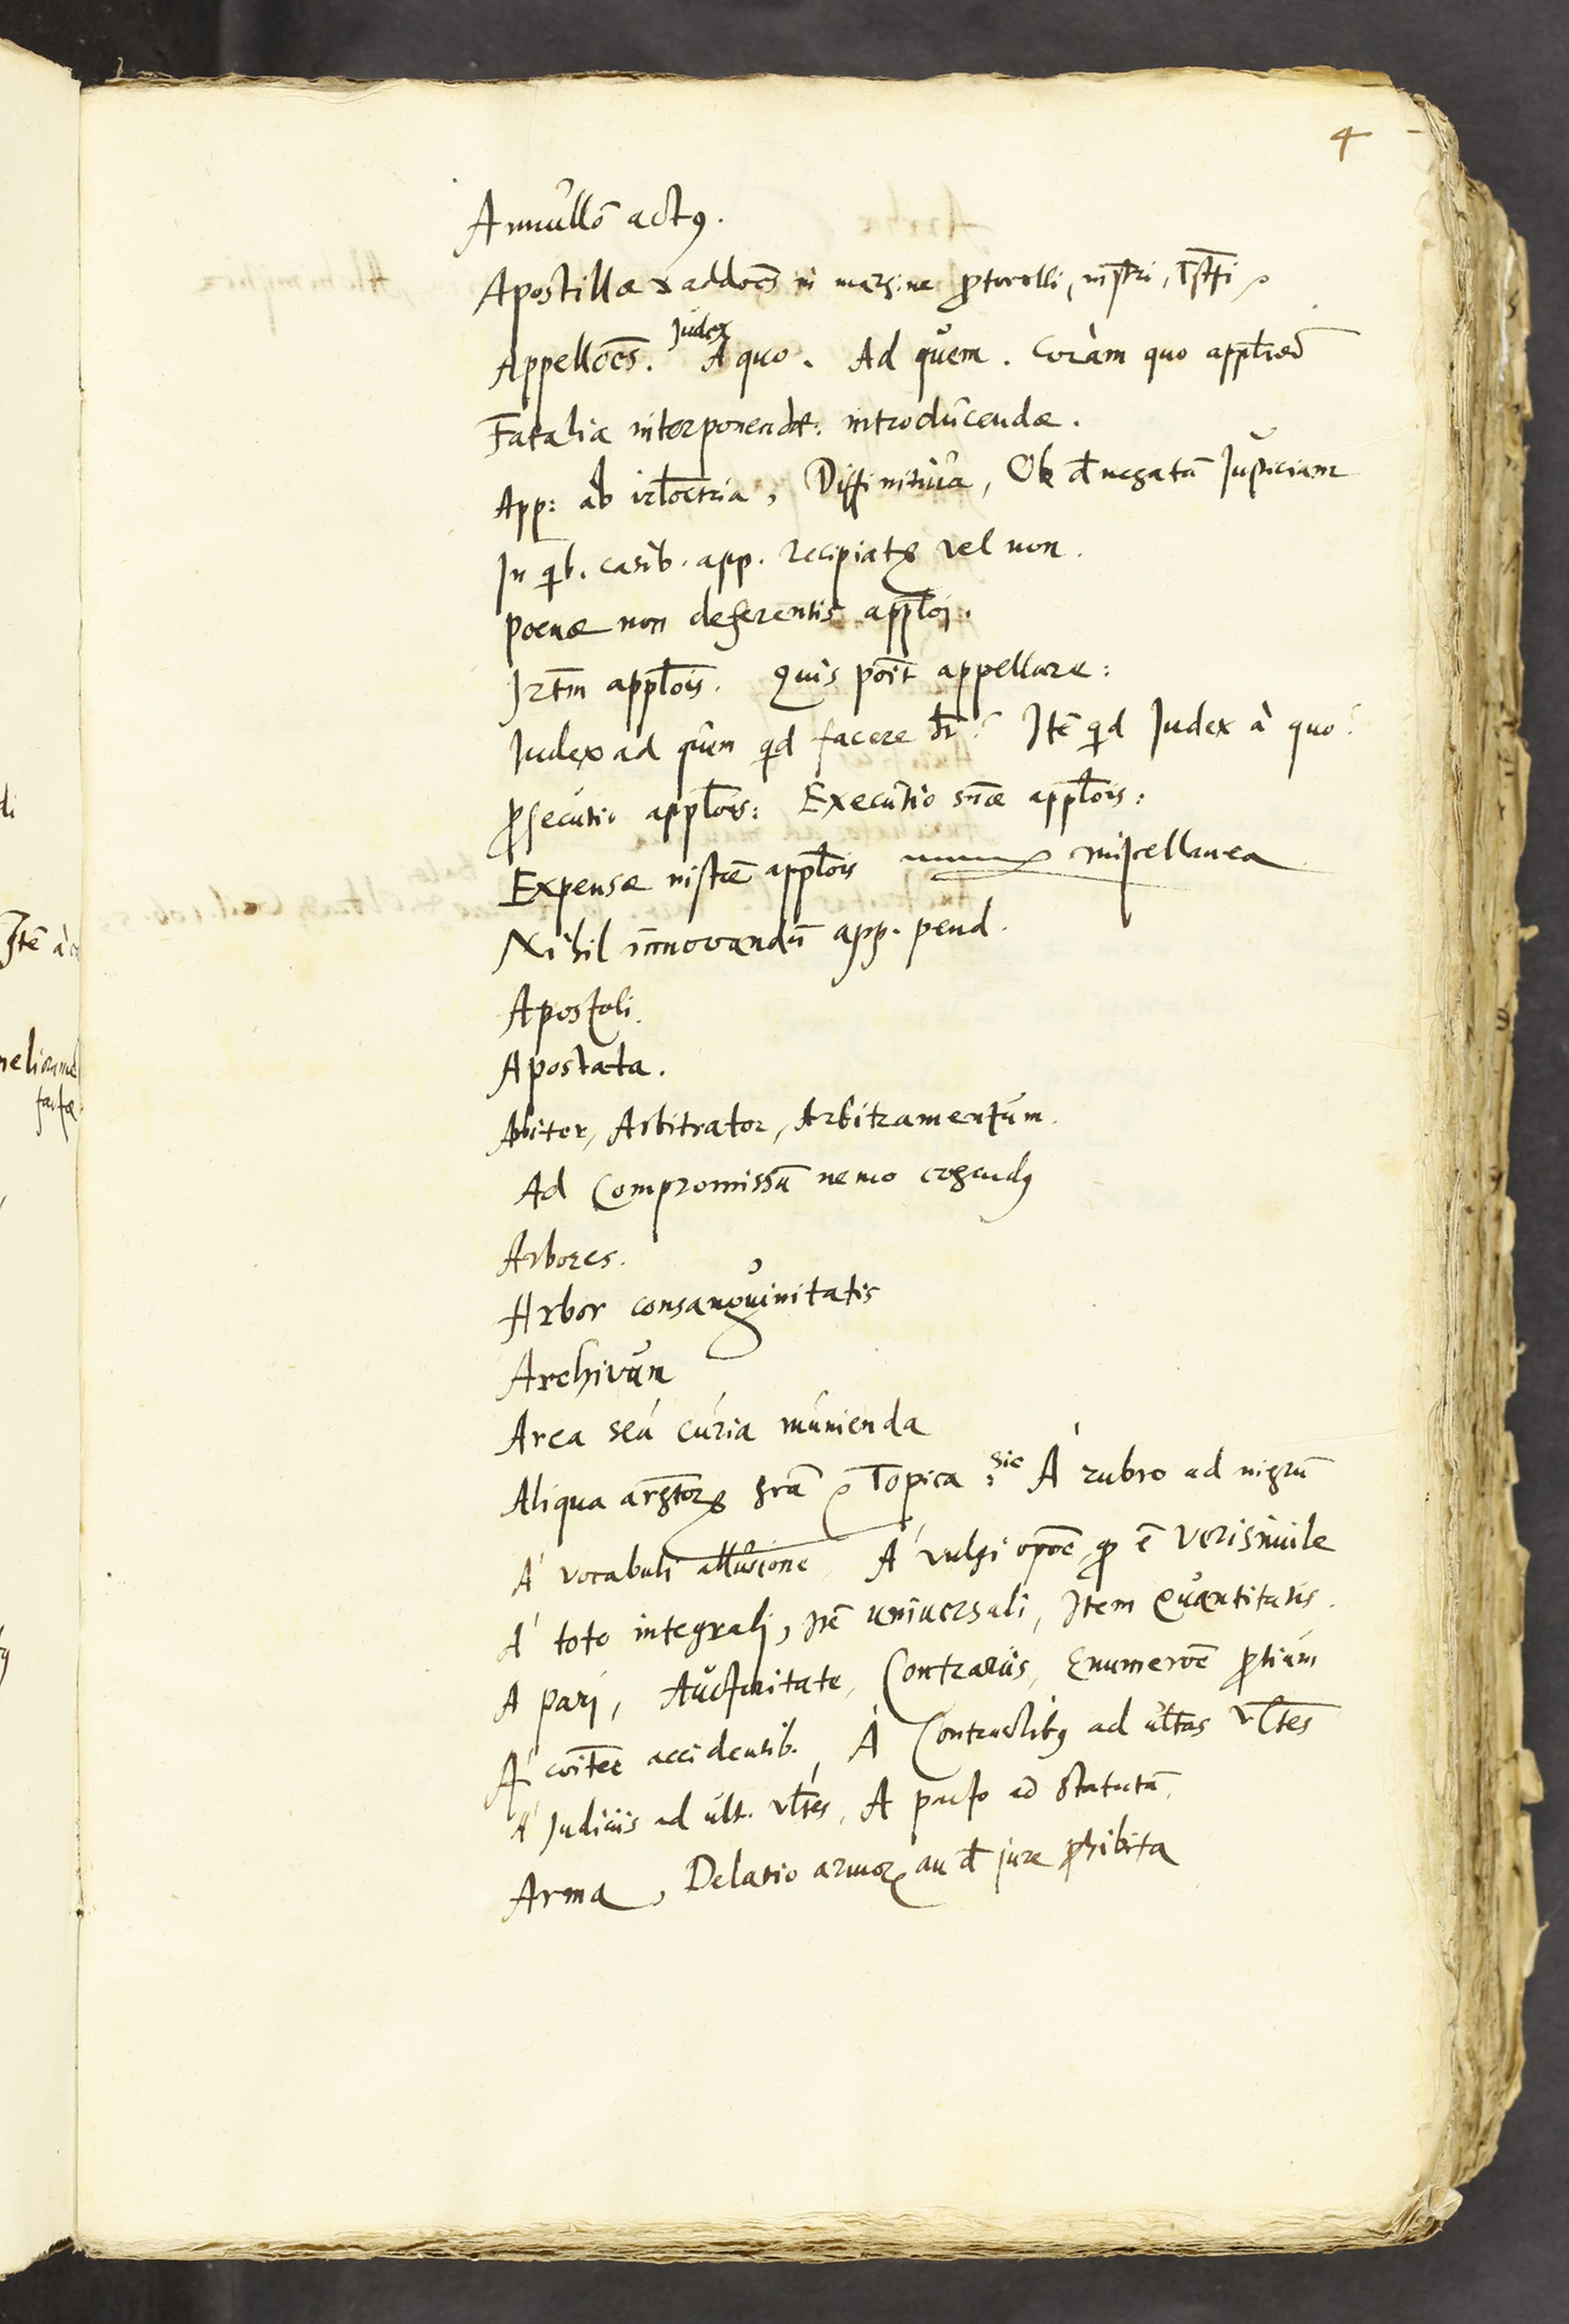 4
Annullō actꝯ.
Apostillæ & addoēs in margine ꝓtocolli, instri, testti
Appelloēs. Judex A quo. Ad quem. Coram quo
Fatalia interponendæ: introducendæ.
App: ab irłoctria, Diffinitiua, Ob đnegatā Justiciam
In qib. casib. app. recipiatꝝ vel non.
Poenæ non deferentis appłoi.
Irtm appłois. Quis poīt appellare:
Judex ad quem qid facere dr? Itē qid Judex à quo?
ꝓsecutio appłois: Executio snīæ appłois:
Expensæ instæ appłois miscellanea
Nihil innovandū app. pend.
Apostoli.
Apostata.
Arbiter, Arbitrator, Arbitramentum.
Ad Compromissū nemo cogendꝯ
Arbores.
Arbor consanguinitatis
Archivum
Area seu curia munienda
Aliqua argtorꝝ grā Topica: sic A rubro ad nigrū
A vocabuli allusione A vulgi opoē qꝫ ē verisimile
A toto integrali, Itē universali, Item Quantitatis.
A pari, Auctoritate, Contrariis, Enumeroē ꝑtium
A cōiter accidentib. A Contractibꝯ ad ultas vłtes
A Judiciis ad ult. vłtes, A pacto ad Statutū
Arma, Delatio armorꝝ an đ jure ꝓhibita
Itē à